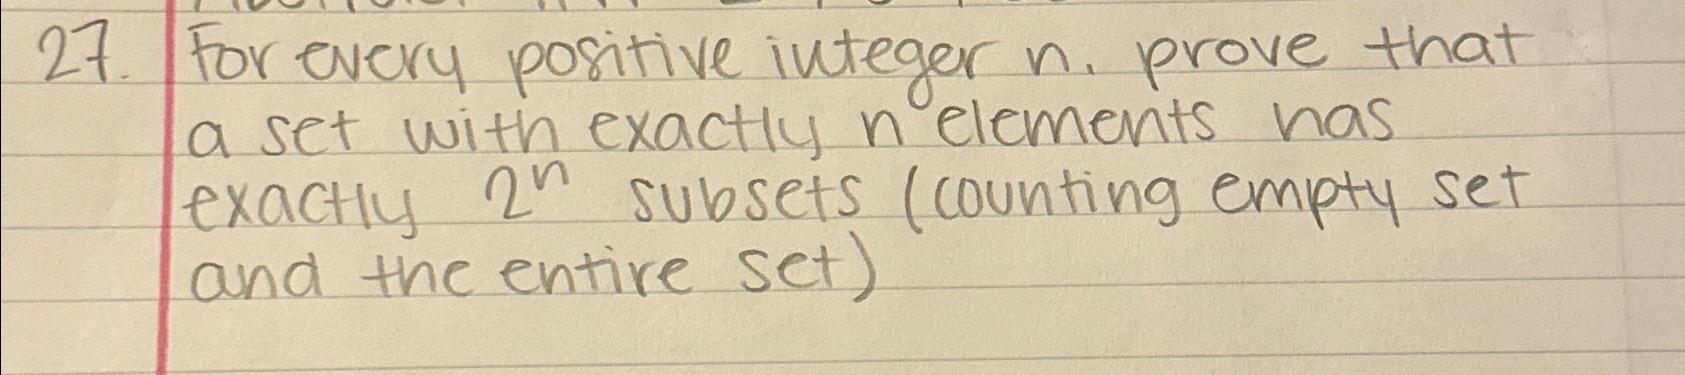 27. For every positive integer n. prove that
a set with exactly n elements has
exactly 2ⁿ subsets (counting empty set
and the entire set)